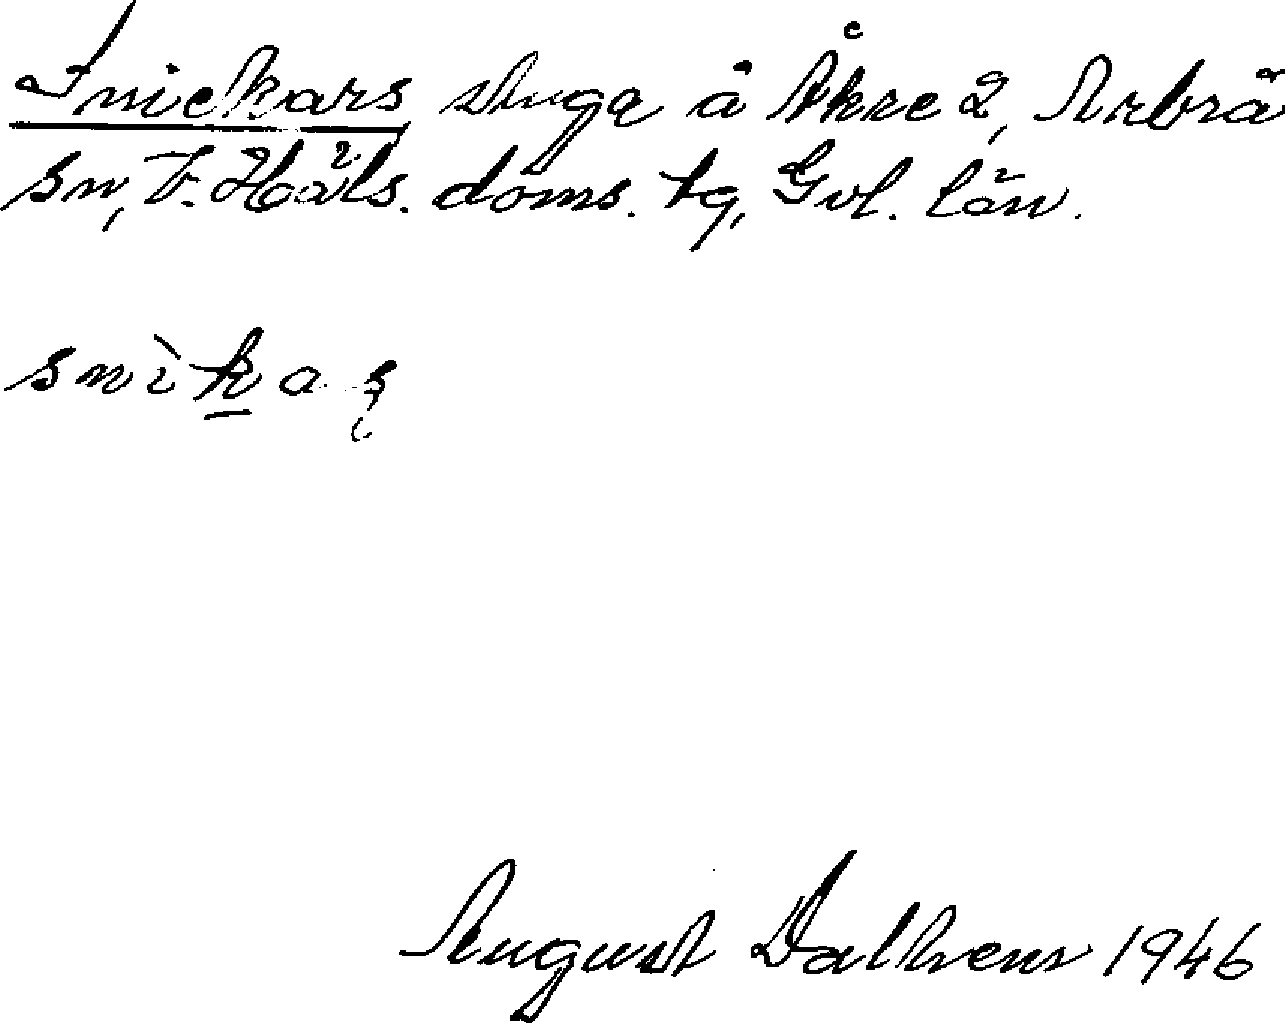 Snickars, stuga å Åkre 2, Arbrå
sn, V. Häls. doms. tg, Gvl. län.
snìkaş
August Dalhem 1946